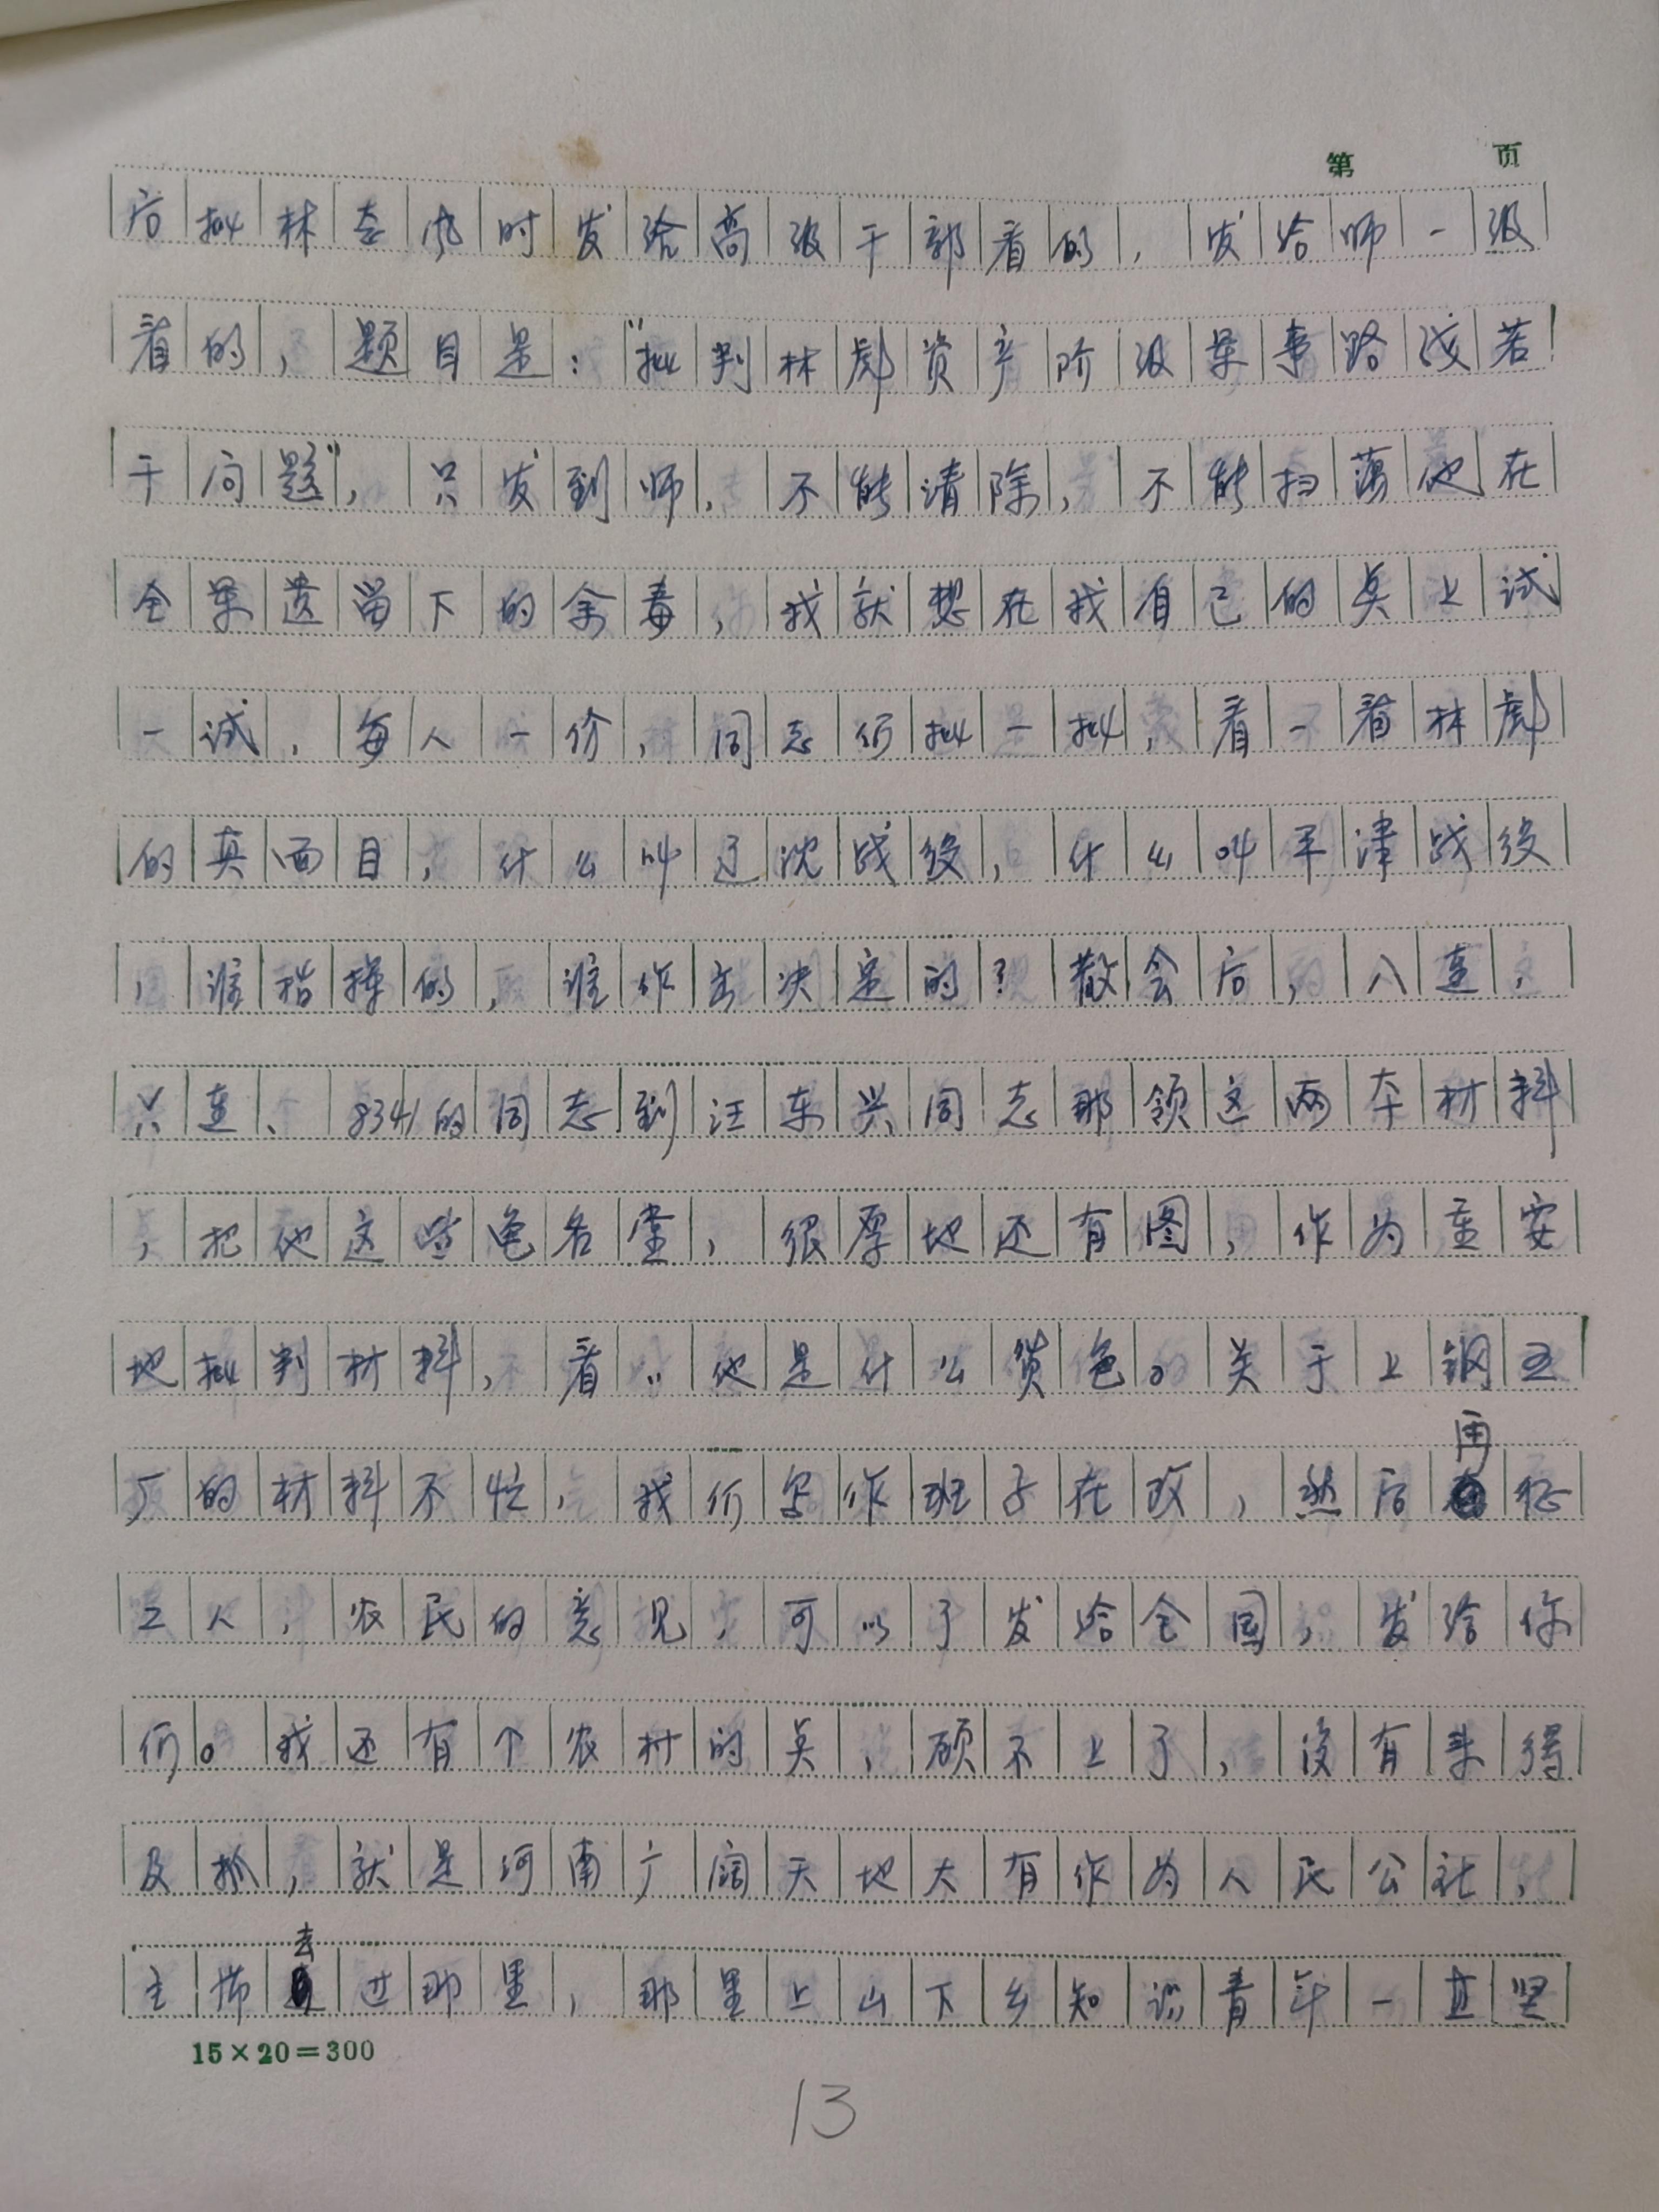 第 页
后批林整风时发给高级干部看的，发给师一级
看的，题目是：“批判林彪资产阶级军事路线若
干问题”，只发到师，不能清除，不能扫荡他在
全军遗留下的余毒，我就想在我自己的点上试
一试，每人一份，同志们批一批，看一看林彪
的真面目，什么叫辽沈战役，什么叫平津战役
，谁指挥的，谁作主决定的？散会后，八连，
六连、8341的同志到汪东兴同志那领这两本材料
，把他这些色名堂，很厚地还有图，作为重要
地批判材料，看〃他是什么货色。关于上钢五
厂的材料不忙，我们写作班子在改，然后再征
工人，农民的意见，可以了发给全国，发给你
们。我还有个农村的点，顾不上了，没有来得
及抓，就是河南广阔天地大有作为人民公社，
主席去过那里，那里上山下乡知识青年一直坚
15×20=300
13